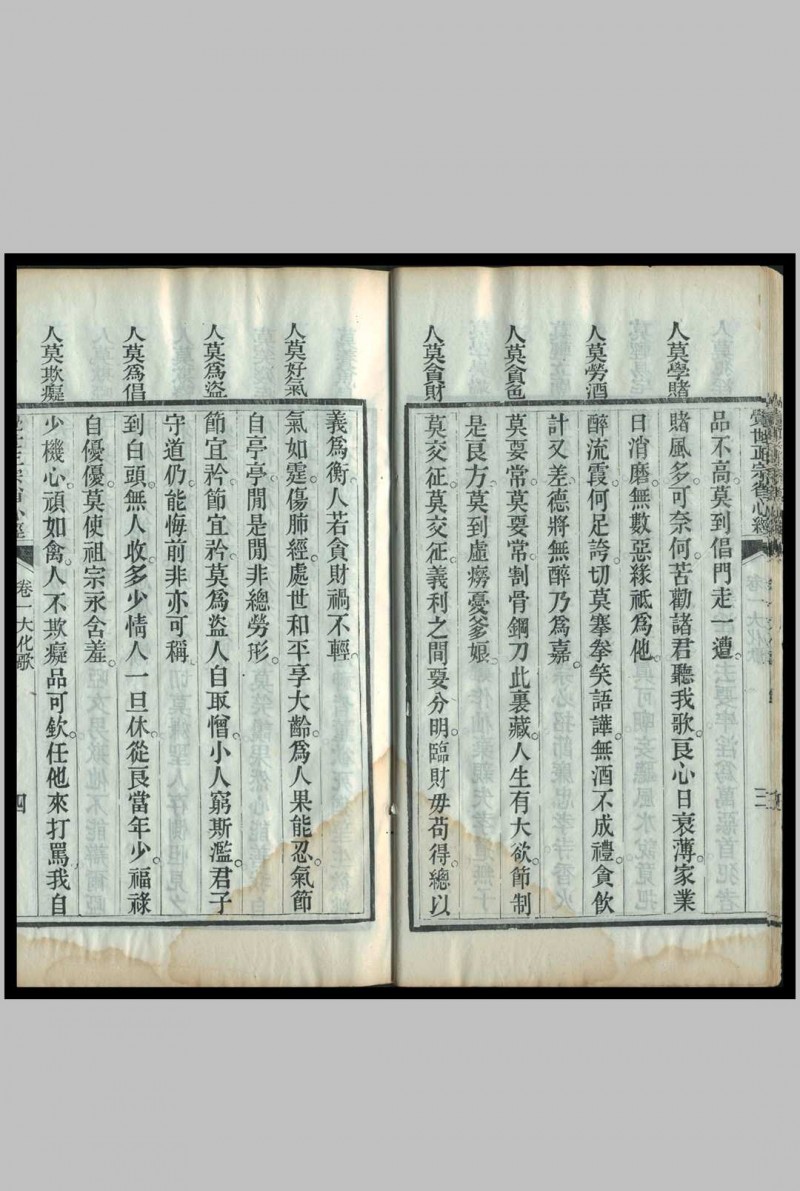 覺世正宗省心經
品不高。莫到倡門走一遭。
人莫學賭
賭風多。可奈何。苦勸諸君聽我歌。良心日衰薄。家業
日消磨。無數惡緣祇為他。
人莫勞酒
醉流霞。何足誇。切莫搴拳笑語譁。無酒不成禮。貪飲
計又差。德將無醉乃爲嘉。
人莫貪色
莫耍常。莫耍常。割骨鋼刀此裏藏。人生有大欲。節制
是良方。莫到虛癆憂爹娘。
人莫貪財
莫交征。莫交征。義利之間要分明。臨財毋苟得。總以
義爲衡。人若貪財禍不輕。
人莫好氣
氣如霆。傷肺經。處世和平享大齡。爲人果能忍。氣節
自亭亭。閒是閒非總勞形。
人莫爲盜
節宜矜。節宜矜。莫爲盜人自取憎。小人窮斯濫。君子
守道仍。能悔前非亦可稱。
人莫爲倡
到白頭。無人收。多少情人一旦休。從良當年少。福祿
自優優。莫使祖宗永含羞。
人莫欺癡
少機心。頑如禽。人不欺癡品可欽。任他來打罵。我自
卷一大化歌
四